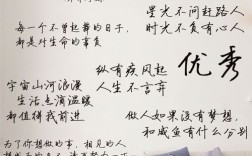 星光不问赶路人
时光不负有心人
每一个不曾起舞的日子,
都是对生命的辜负
纵有疾风起
人生不言弃
优秀
宇宙山河浪漫
生活点滴温暖
都值得我前进
做人如果没有梦想,
和咸鱼有什么分别
为了你想做的事,想见的人